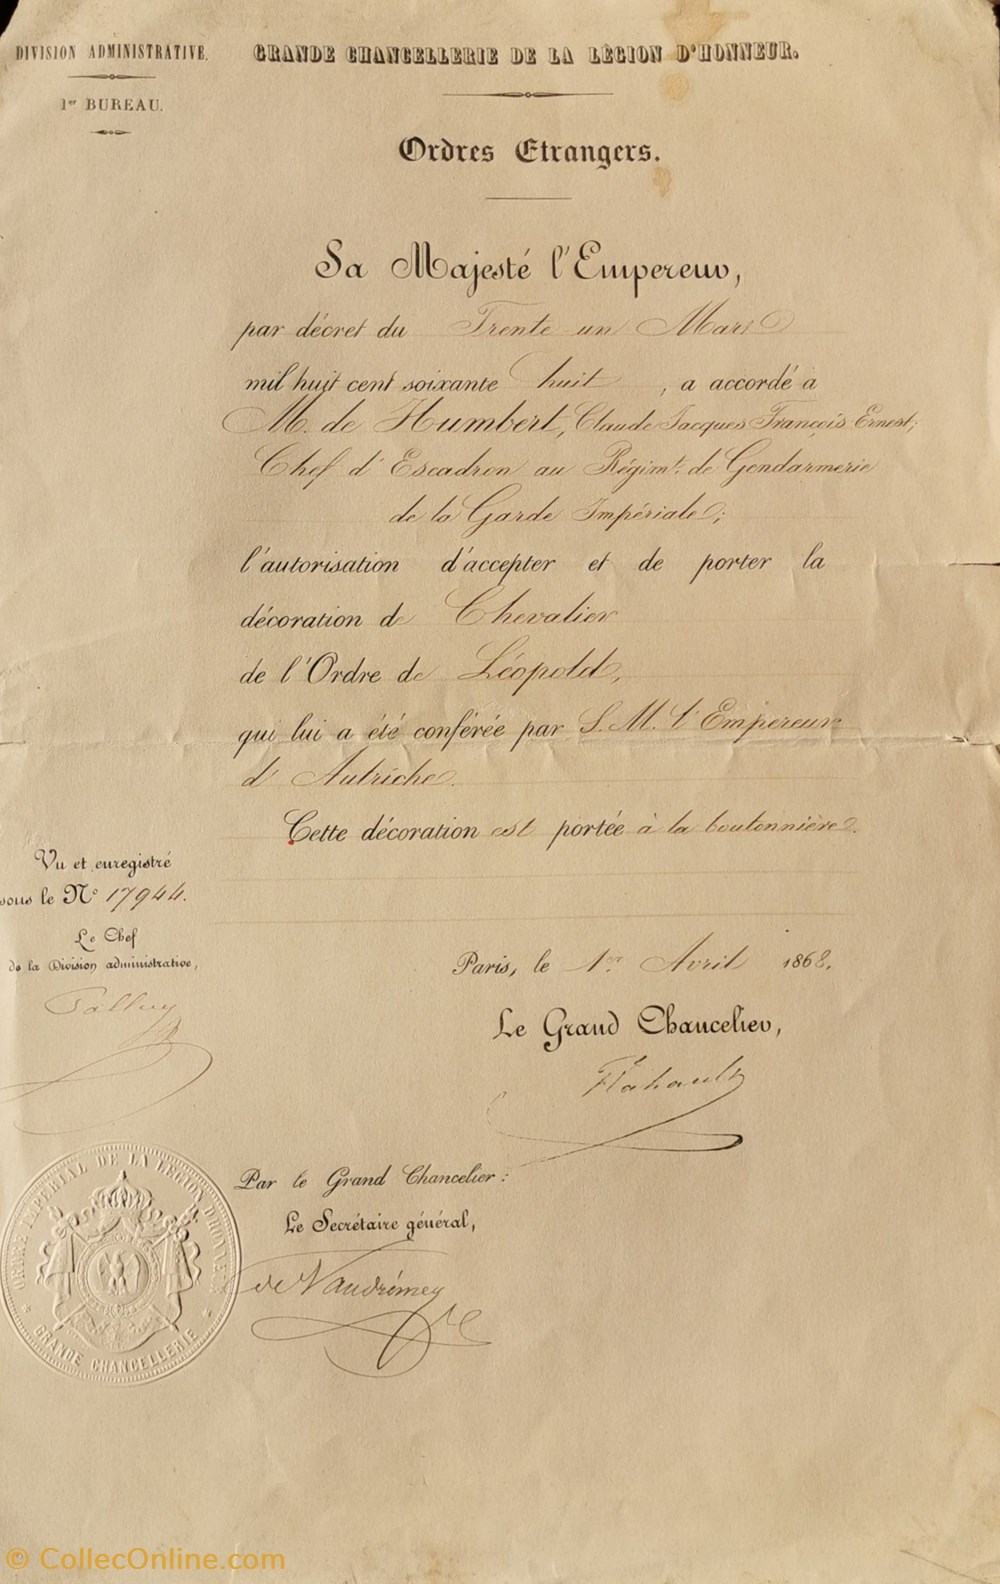 DIVISION ADMINISTRATIVE.
1er BUREAU.
GRANDE CHANCELLERIE DE LA LÉGION D'HONNEUR.
Ordres Etrangers.
Sa Majesté l'Empereur,
par décret du Trente un Mars
mil huit cent soixante huit, a accordé à
M. de Humbert, Claude Jacques François Ernest,
Chef d'Escadron au Régimt. de Gendarmerie
de la Garde Impériale;
l'autorisation d'accepter et de porter la
décoration de Chevalier
de l'Ordre de Léopold,
qui lui a été conférée par S. M. l'Empereur
d'Autriche.
Cette décoration est portée à la boutonnière.
Vu et enregistré
sous le No 17944.
Le Chef
de la Division administrative,
Paris, le 1er Avril 1868.
Le Grand Chancelier,
Flahault
Par le Grand Chancelier:
Le Secrétaire général,
de Vaudrémey
ORDRE IMPÉRIAL DE LA LÉGION D'HONNEUR
* GRANDE CHANCELLERIE *
© CollecOnline.com